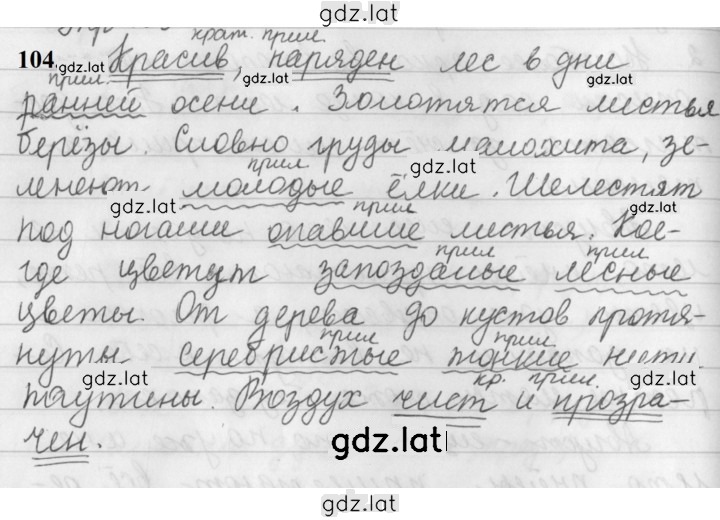 gdz.lat
крат. прил.
104 gdz.lat Красив, наряден лес в дни
прил. gdz.lat gdz.lat
ранней осени. Золотятся листья
gdz.lat
берёзы. Словно груды малахита, зе-
прил
ленеют молодые ёлки. Шелестят
gdz.lat прил gdz.lat
под ногами опавшие листья. Кое-
прил прил
где цветут запоздалые лесные
gdz.lat
цветы. От дерева до кустов протя-
прил прил
нуты серебристые тонкие нити
gdz.lat кр. прил. gdz.lat
паутины. Воздух чист и прозра-
чен. gdz.lat
gdz.lat